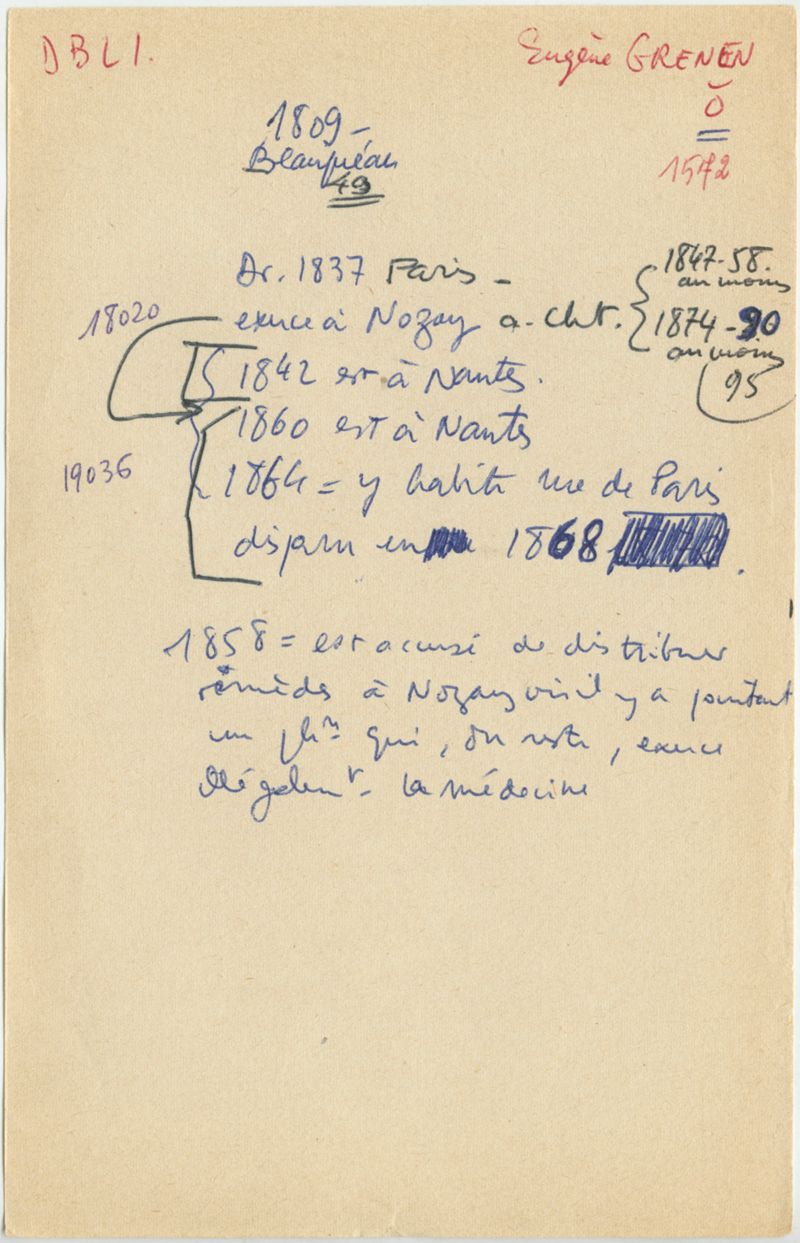 DBLI.
Eugène GRENEN
ŏ
1572
1809 -
Beaupréau
49
Dr. 1837 Paris -
exerce à Nozay a-Cht. { 1847-58. au moins
1874-90 au moins
95
18020
1842 est à Nantes.
1860 est à Nantes
19036
1864 = y habite rue de Paris
disparu en 1868
1858 = est accusé de distribuer
remèdes à Nozay où il y a pourtant
un phn qui, du reste, exerce
illégalemt - la médecine